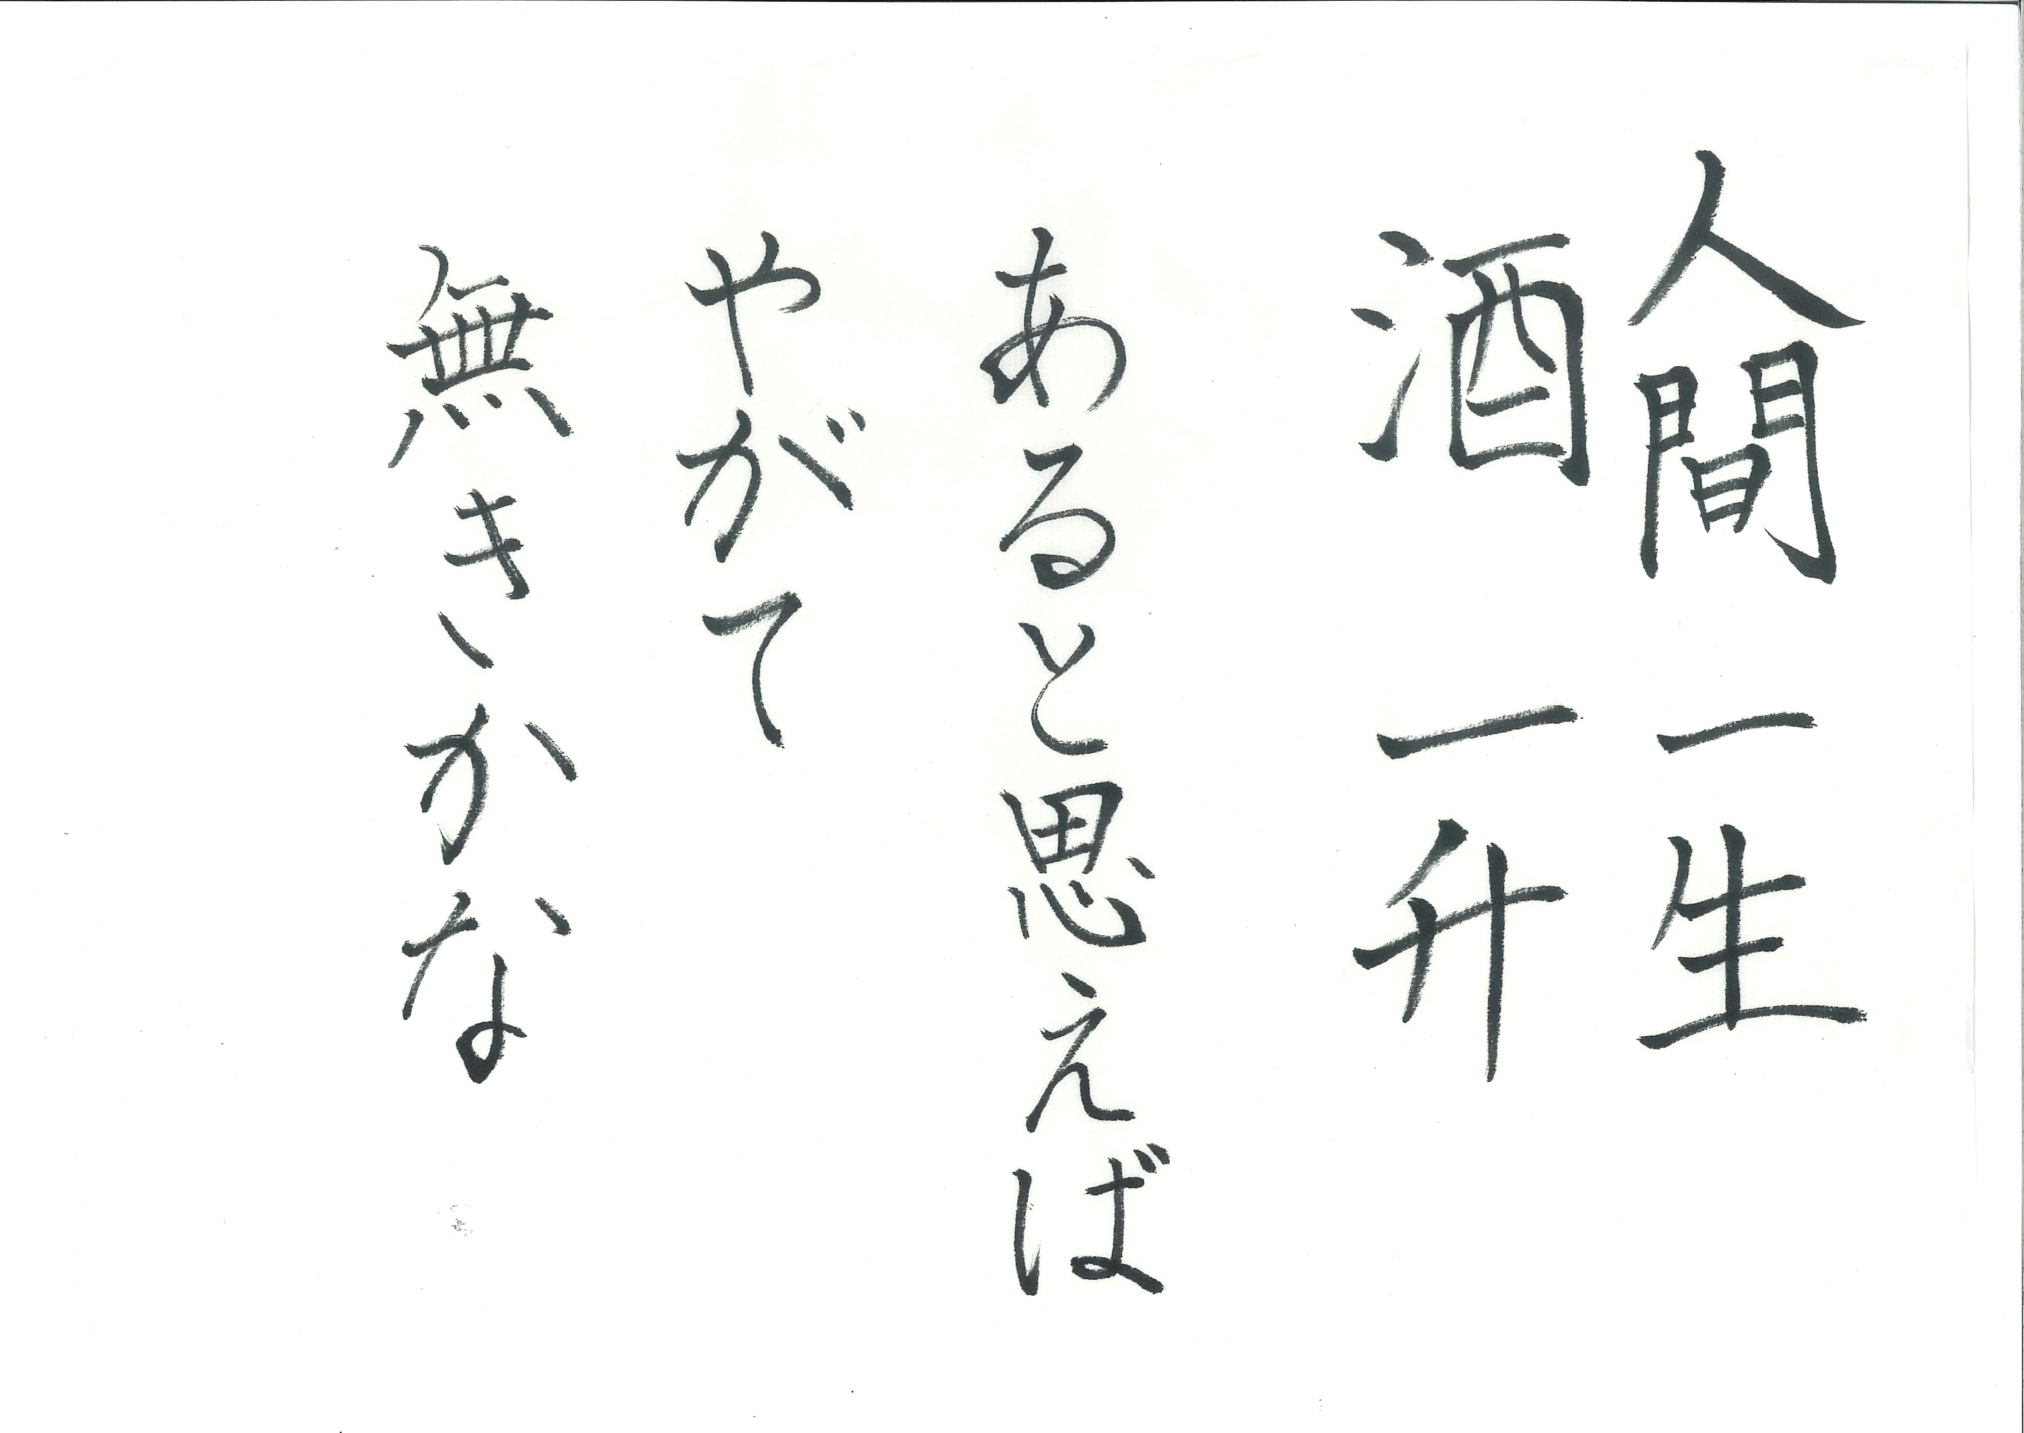 人間 一生
酒 一升
あると思えば
やがて
無きかな